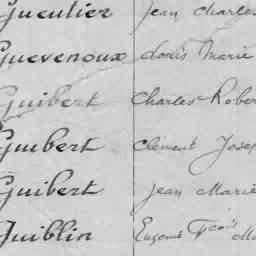 Gueutier Jean Charles
Guevenoux Louis Marie
Guibert Charles-Rober
Guibert Clément Josep
Guibert Jean Marie
Guiblin Eugène Fçois Ma